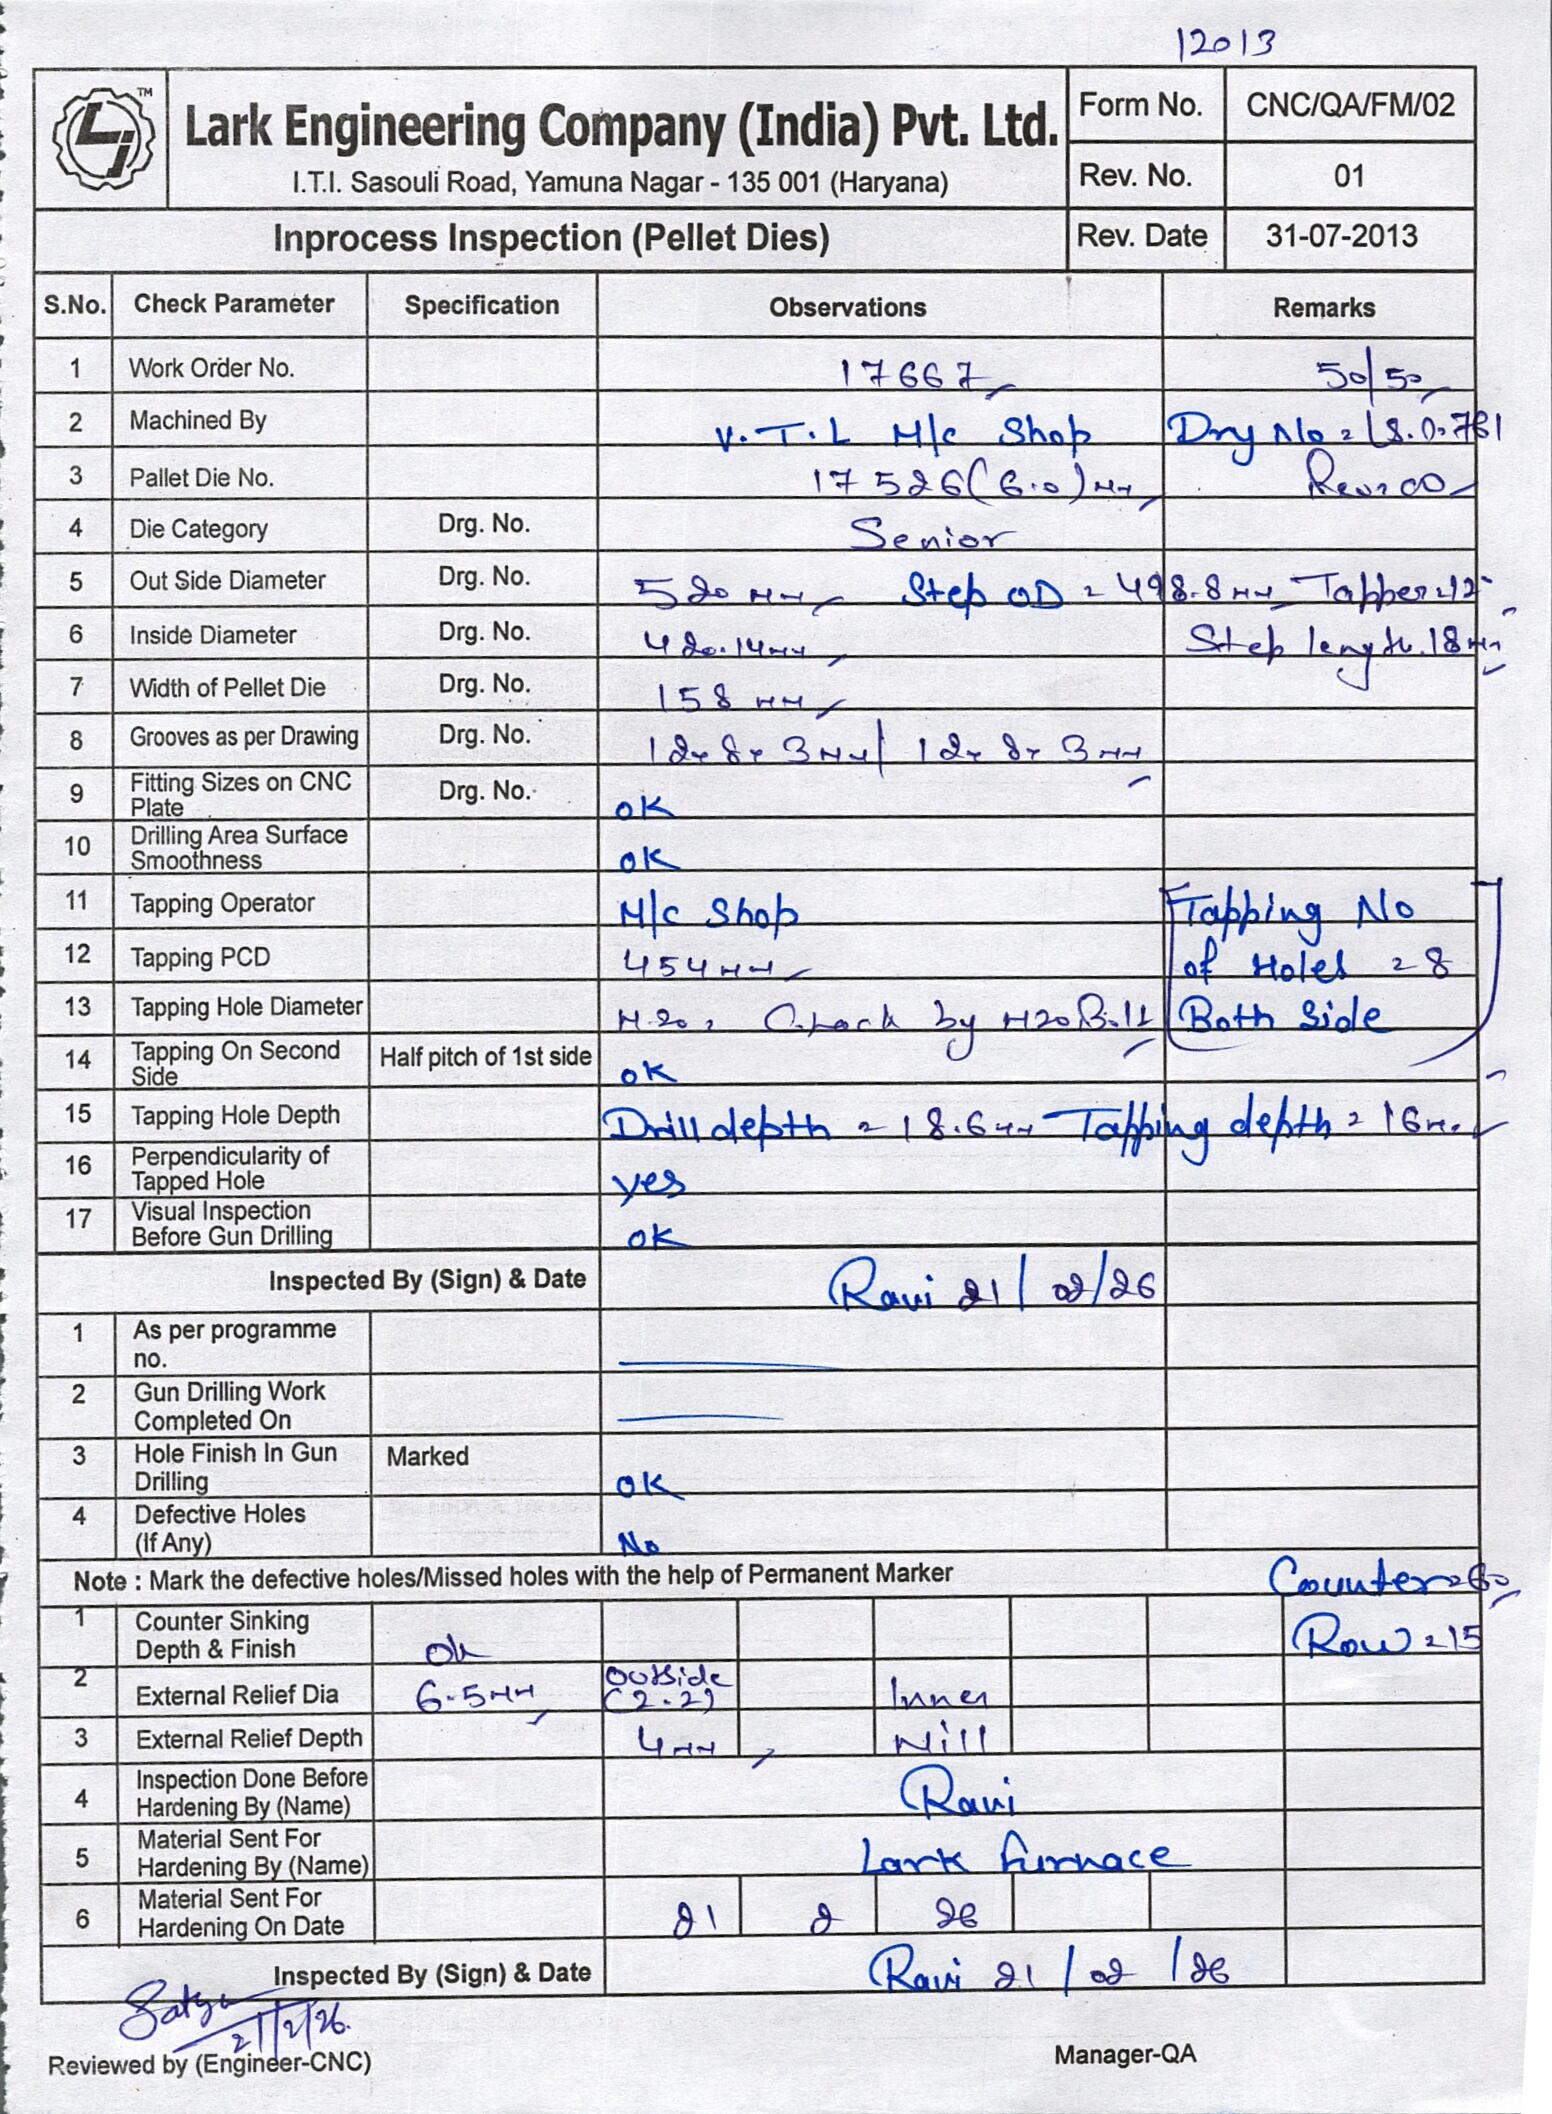 12013
LJ TM
Lark Engineering Company (India) Pvt. Ltd.
I.T.I. Sasouli Road, Yamuna Nagar - 135 001 (Haryana)
Form No. CNC/QA/FM/02
Rev. No. 01
Inprocess Inspection (Pellet Dies) Rev. Date 31-07-2013
S.No. Check Parameter Specification Observations Remarks
1 Work Order No. 17667 50/50
2 Machined By V.T.L M/c Shop Dry No = LS.0.781
3 Pallet Die No. 17526 (6.0) mm Rev=00
4 Die Category Drg. No. Senior
5 Out Side Diameter Drg. No. 520 mm Step OD = 498.8 mm Tapper=12°
6 Inside Diameter Drg. No. 420.14mm Step length.18mm
7 Width of Pellet Die Drg. No. 158 mm
8 Grooves as per Drawing Drg. No. 12x8x3mm/12x8x3mm
9 Fitting Sizes on CNC Plate Drg. No. OK
10 Drilling Area Surface Smoothness OK
11 Tapping Operator M/c Shop Tapping No
12 Tapping PCD 454mm of Holes = 8
13 Tapping Hole Diameter M.20, Check by M20 Bolt Both Side
14 Tapping On Second Side Half pitch of 1st side OK
15 Tapping Hole Depth Drill depth = 18.6mm Tapping depth = 16mm
16 Perpendicularity of Tapped Hole yes
17 Visual Inspection Before Gun Drilling OK
Inspected By (Sign) & Date Ravi 21/02/26
1 As per programme no.
2 Gun Drilling Work Completed On
3 Hole Finish In Gun Drilling Marked OK
4 Defective Holes (If Any) No
Note : Mark the defective holes/Missed holes with the help of Permanent Marker Counter=60
1 Counter Sinking Depth & Finish Ok Row=15
2 External Relief Dia 6.5mm Outside (2.2) Inner
3 External Relief Depth 4mm Nill
4 Inspection Done Before Hardening By (Name) Ravi
5 Material Sent For Hardening By (Name) Lark furnace
6 Material Sent For Hardening On Date 21 2 26
Inspected By (Sign) & Date Ravi 21/02/26
Satya
21/2/26.
Reviewed by (Engineer-CNC) Manager-QA